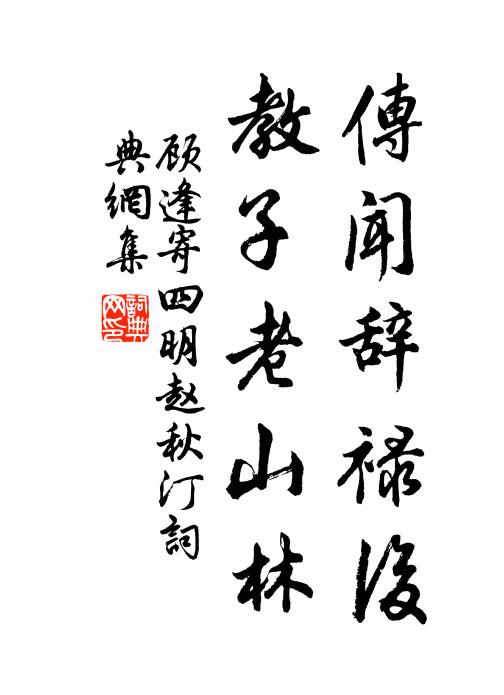 傳聞辞禄後
教子老山林
顾逢寄四明赵秋汀詞
典網集
詞典網印